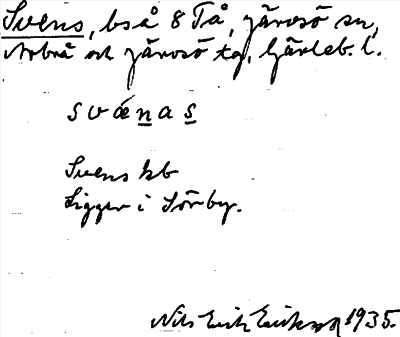 Svens, bså 8 Tå, Järvsö sn,
Arbrå och Järvsö tg, Gävleb. l.
svǽnas
Svens hb
Ligger i Sörby.
Nils Erik Eriksson 1935.